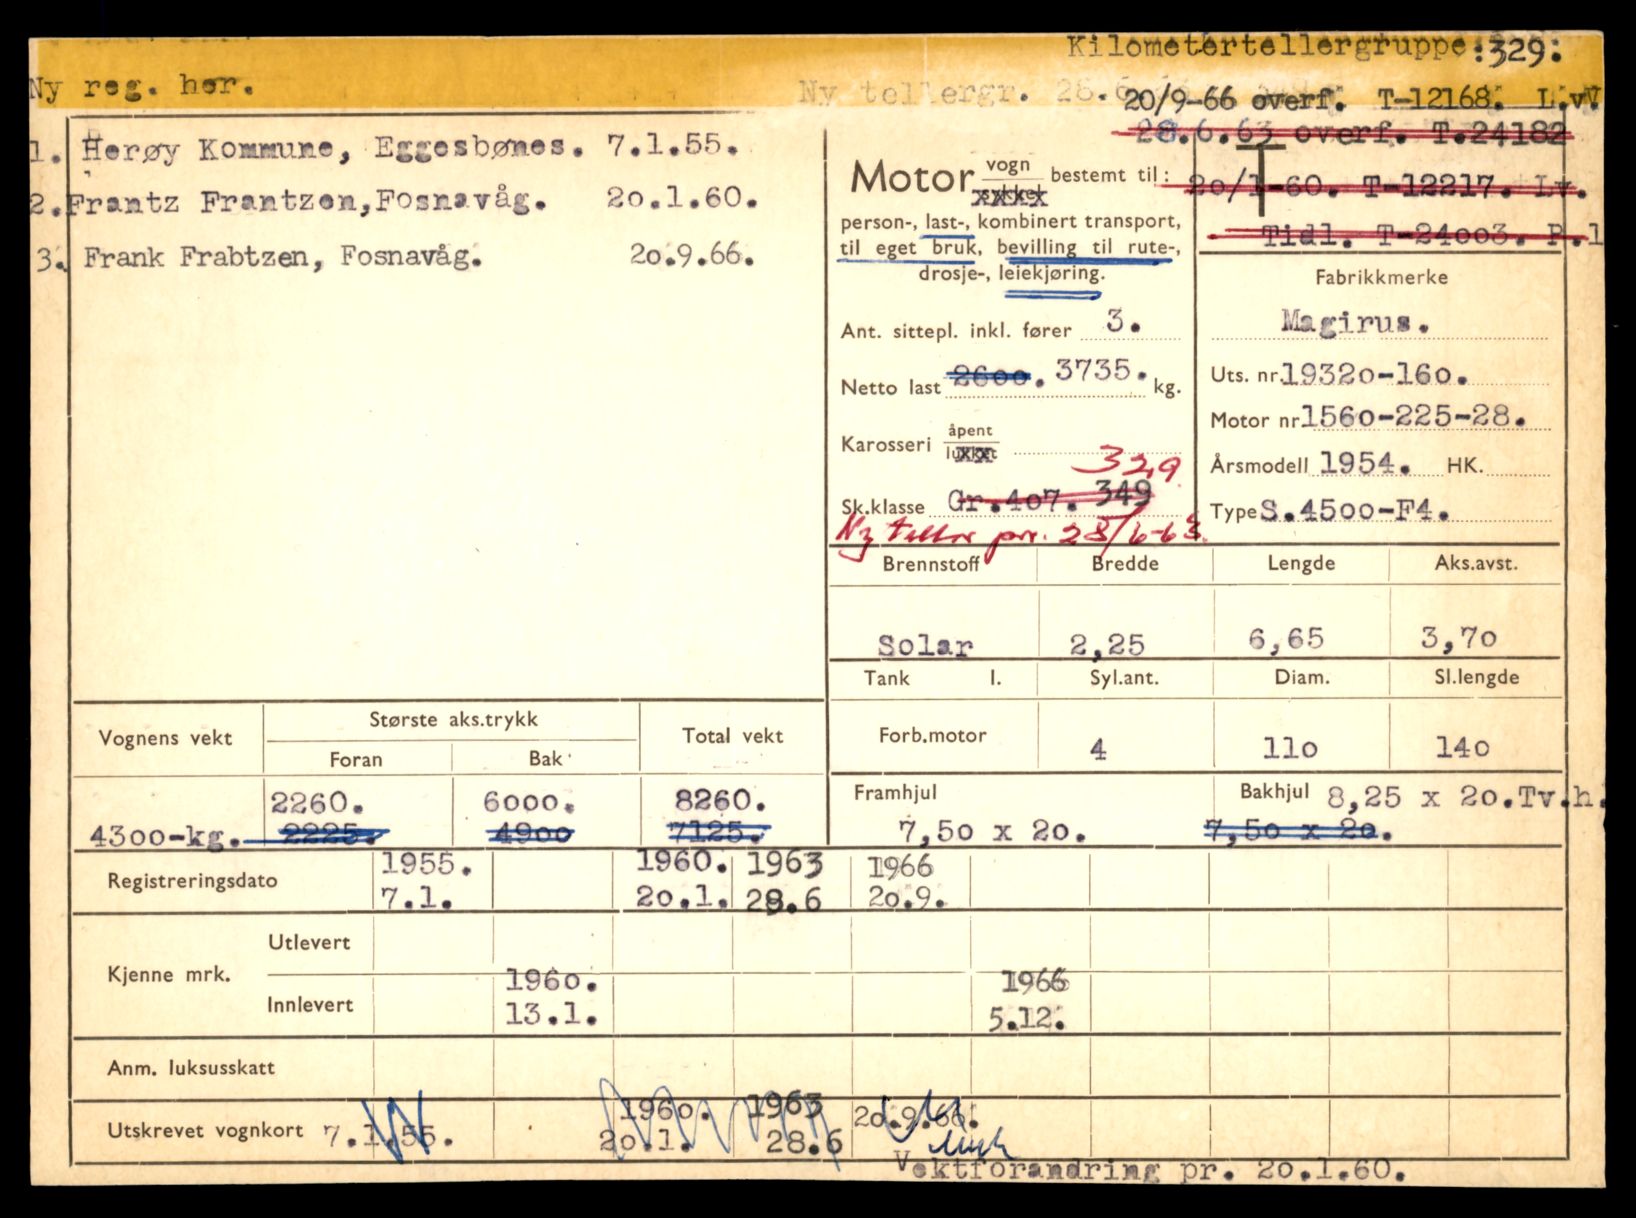 Kilometertellergruppe:329:
Ny reg. her.
Ny tellergr. 28.6
20/9-66 overf. T-12168. L.vV.
28.6.63 overf. T.24182
20/1-60. T-12217. Lv.
Tidl. T-24003. P.l
1. Herøy Kommune, Eggesbønes. 7.1.55.
2. Frantz Frantzen, Fosnavåg. 20.1.60.
3. Frank Frabtzen, Fosnavåg. 20.9.66.
Motor vogn bestemt til:
person-, last-, kombinert transport,
til eget bruk, bevilling til rute-,
drosje-, leiekjøring.
Ant. sittepl. inkl. fører 3.
Netto last 2600. 3735. kg.
Karosseri åpent
lukket
329
Sk.klasse Gr.407. 349
Ny teller pr. 28/6-63.
Fabrikkmerke
Magirus.
Uts. nr. 19320-160.
Motor nr. 1560-225-28.
Årsmodell 1954. HK.
Type S.4500-F4.
Brennstoff Bredde Lengde Aks.avst.
Solar 2,25 6,65 3,70
Tank l. Syl.ant. Diam. Sl.lengde
Forb.motor 4 110 140
Vognens vekt Største aks.trykk Total vekt
Foran Bak
2260. 6000. 8260.
4300-kg. 2225. 4900 7125.
Framhjul Bakhjul 8,25 x 20.Tv.h.
7,50 x 20. 7,50 x 20.
Registreringsdato 1955. 1960. 1963 1966
7.1. 20.1. 28.6 20.9.
Kjenne mrk. Utlevert
Innlevert 1960. 1966
13.1. 5.12.
Anm. luksusskatt
Utskrevet vognkort 7.1.55. 1960. 1963 20.9.66.
20.1. 28.6
Vektforandring pr. 20.1.60.